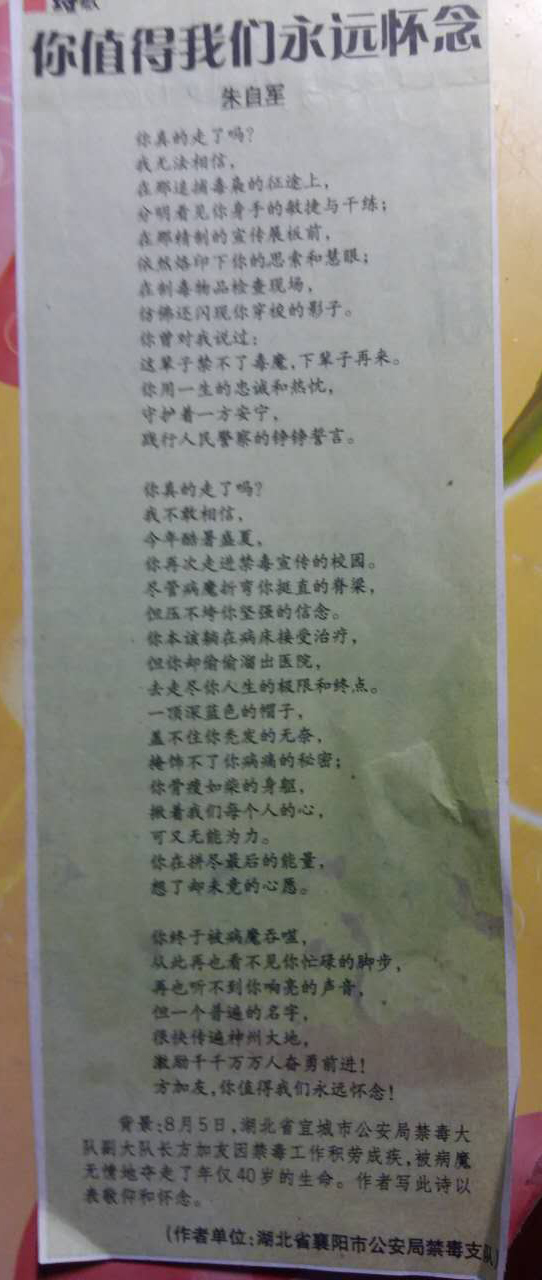 诗歌
你值得我们永远怀念
朱自军
你真的走了吗?
我无法相信,
在那逮捕毒枭的征途上,
分明看见你身手的敏捷与干练;
在那精制的宣传展板前,
依然烙印下你的思索和慧眼;
在制毒物品检查现场,
仿佛还闪现你穿梭的影子。
你曾对我说过:
这辈子禁不了毒魔,下辈子再来。
你用一生的忠诚和热忱,
守护着一方安宁,
践行人民警察的铮铮誓言。
你真的走了吗?
我不敢相信,
今年酷暑盛夏,
你再次走进禁毒宣传的校园。
尽管病魔折弯你挺直的脊梁,
但压不垮你坚强的信念。
你本该躺在病床接受治疗,
但你却偷偷溜出医院,
去走尽你人生的极限和终点。
一顶深蓝色的帽子,
盖不住你秃发的无奈,
掩饰不了你病痛的秘密;
你骨瘦如柴的身躯,
揪着我们每个人的心,
可又无能为力。
你在拼尽最后的能量,
想了却未竟的心愿。
你终于被病魔吞噬,
从此再也看不见你忙碌的脚步,
再也听不到你响亮的声音,
但一个普遍的名字,
很快传遍神州大地,
激励千千万万人奋勇前进!
方加友,你值得我们永远怀念!
背景:8月5日,湖北省宜城市公安局禁毒大
队副大队长方加友因禁毒工作积劳成疾,被病魔
无情地夺走了年仅40岁的生命。作者写此诗以
表敬仰和怀念。
(作者单位:湖北省襄阳市公安局禁毒支队)